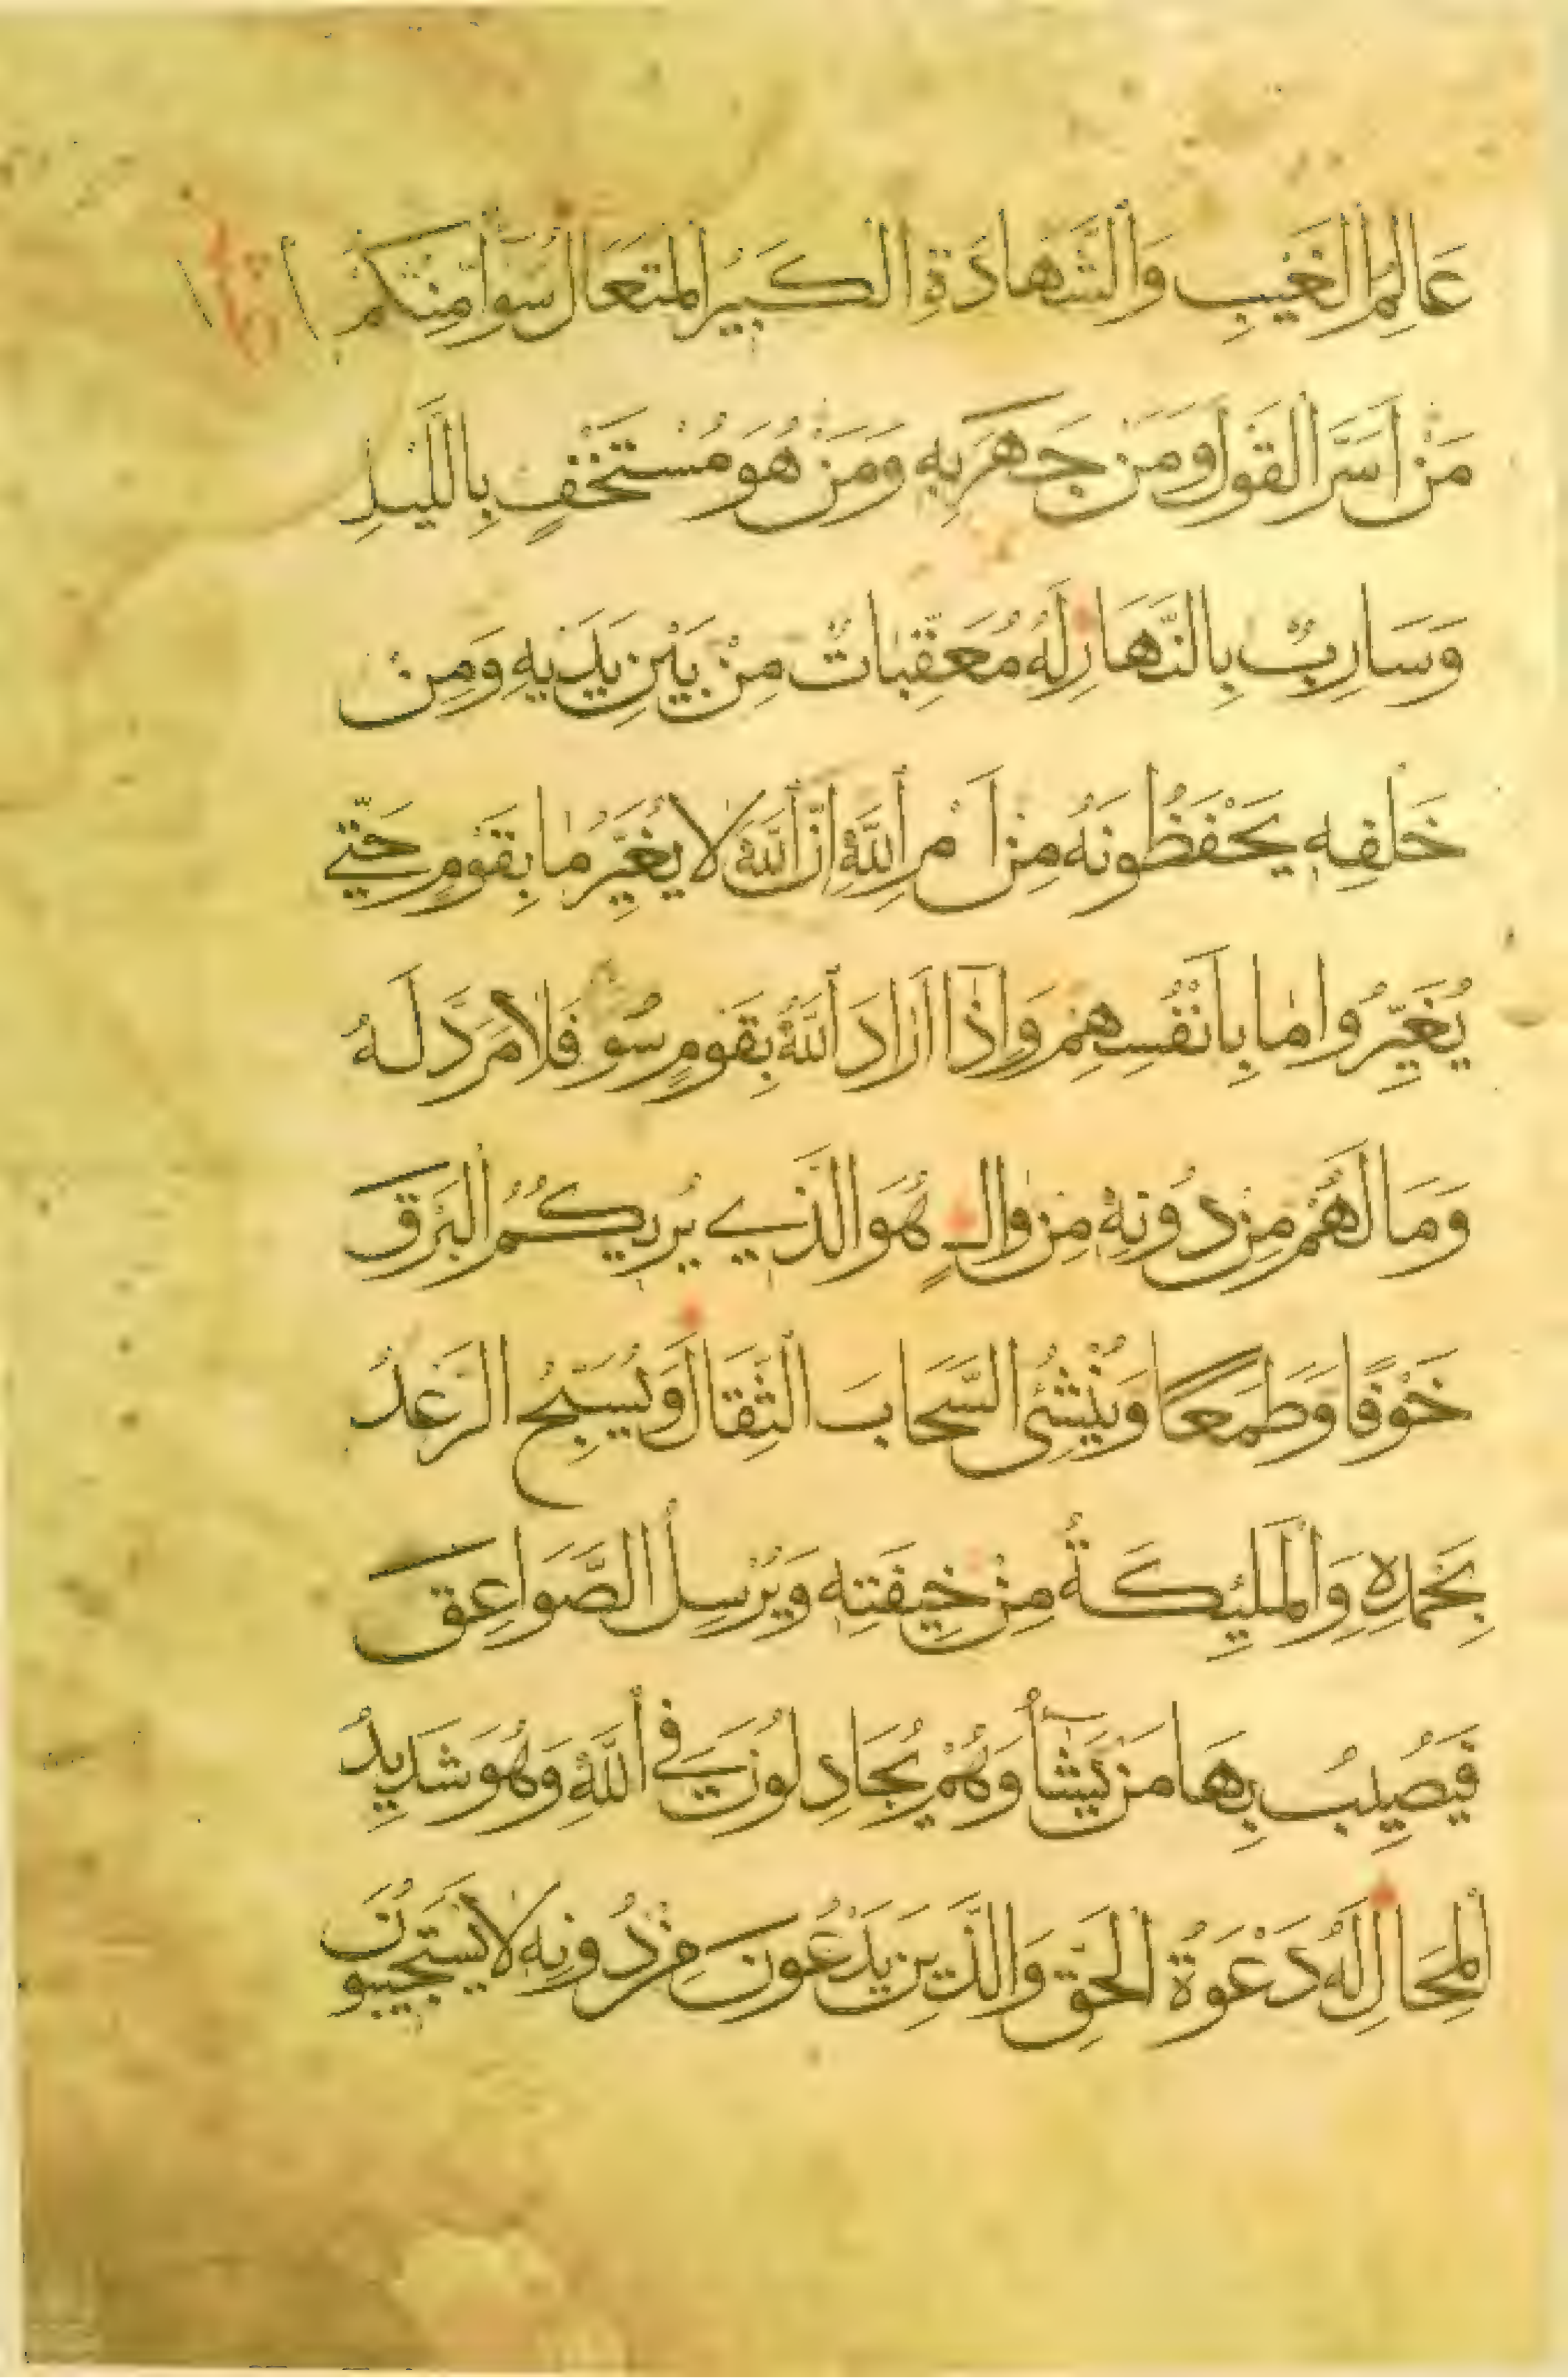 عَالِمُ الْغَيْبِ وَالشَّهَادَةِ الْكَبِيرُ الْمُتَعَالِ سَوَآءٌ مِنْكُمْ
مَنْ اَسَرَّ الْقَوْلَ وَمَنْ جَهَرَ بِهِ وَمَنْ هُوَ مُسْتَخْفٍ بِاللَّيْلِ
وَسَارِبٌ بِالنَّهَارِ لَهُ مُعَقِّبَاتٌ مِنْ بَيْنِ يَدَيْهِ وَمِنْ
خَلْفِهِ يَحْفَظُونَهُ مِنْ اَمْرِ اللَّهِ اِنَّ اللَّهَ لَا يُغَيِّرُ مَا بِقَوْمٍ حَتّٰي
يُغَيِّرُوا مَا بِاَنْفُسِهِمْ وَاِذَا اَرَادَ اللَّهُ بِقَوْمٍ سُوءًا فَلَا مَرَدَّ لَهُ
وَمَا لَهُمْ مِنْ دُونِهِ مِنْ وَالٍ هُوَ الَّذِي يُرِيكُمُ الْبَرْقَ
خَوْفًا وَطَمَعًا وَيُنْشِئُ السَّحَابَ الثِّقَالَ وَيُسَبِّحُ الرَّعْدُ
بِحَمْدِهِ وَالْمَلٰئِكَةُ مِنْ خِيفَتِهِ وَيُرْسِلُ الصَّوَاعِقَ
فَيُصِيبُ بِهَا مَنْ يَشَآءُ وَهُمْ يُجَادِلُونَ فِي اللَّهِ وَهُوَ شَدِيدُ
الْمِحَالِ لَهُ دَعْوَةُ الْحَقِّ وَالَّذِينَ يَدْعُونَ مِنْ دُونِهِ لَا يَسْتَجِيبُونَ